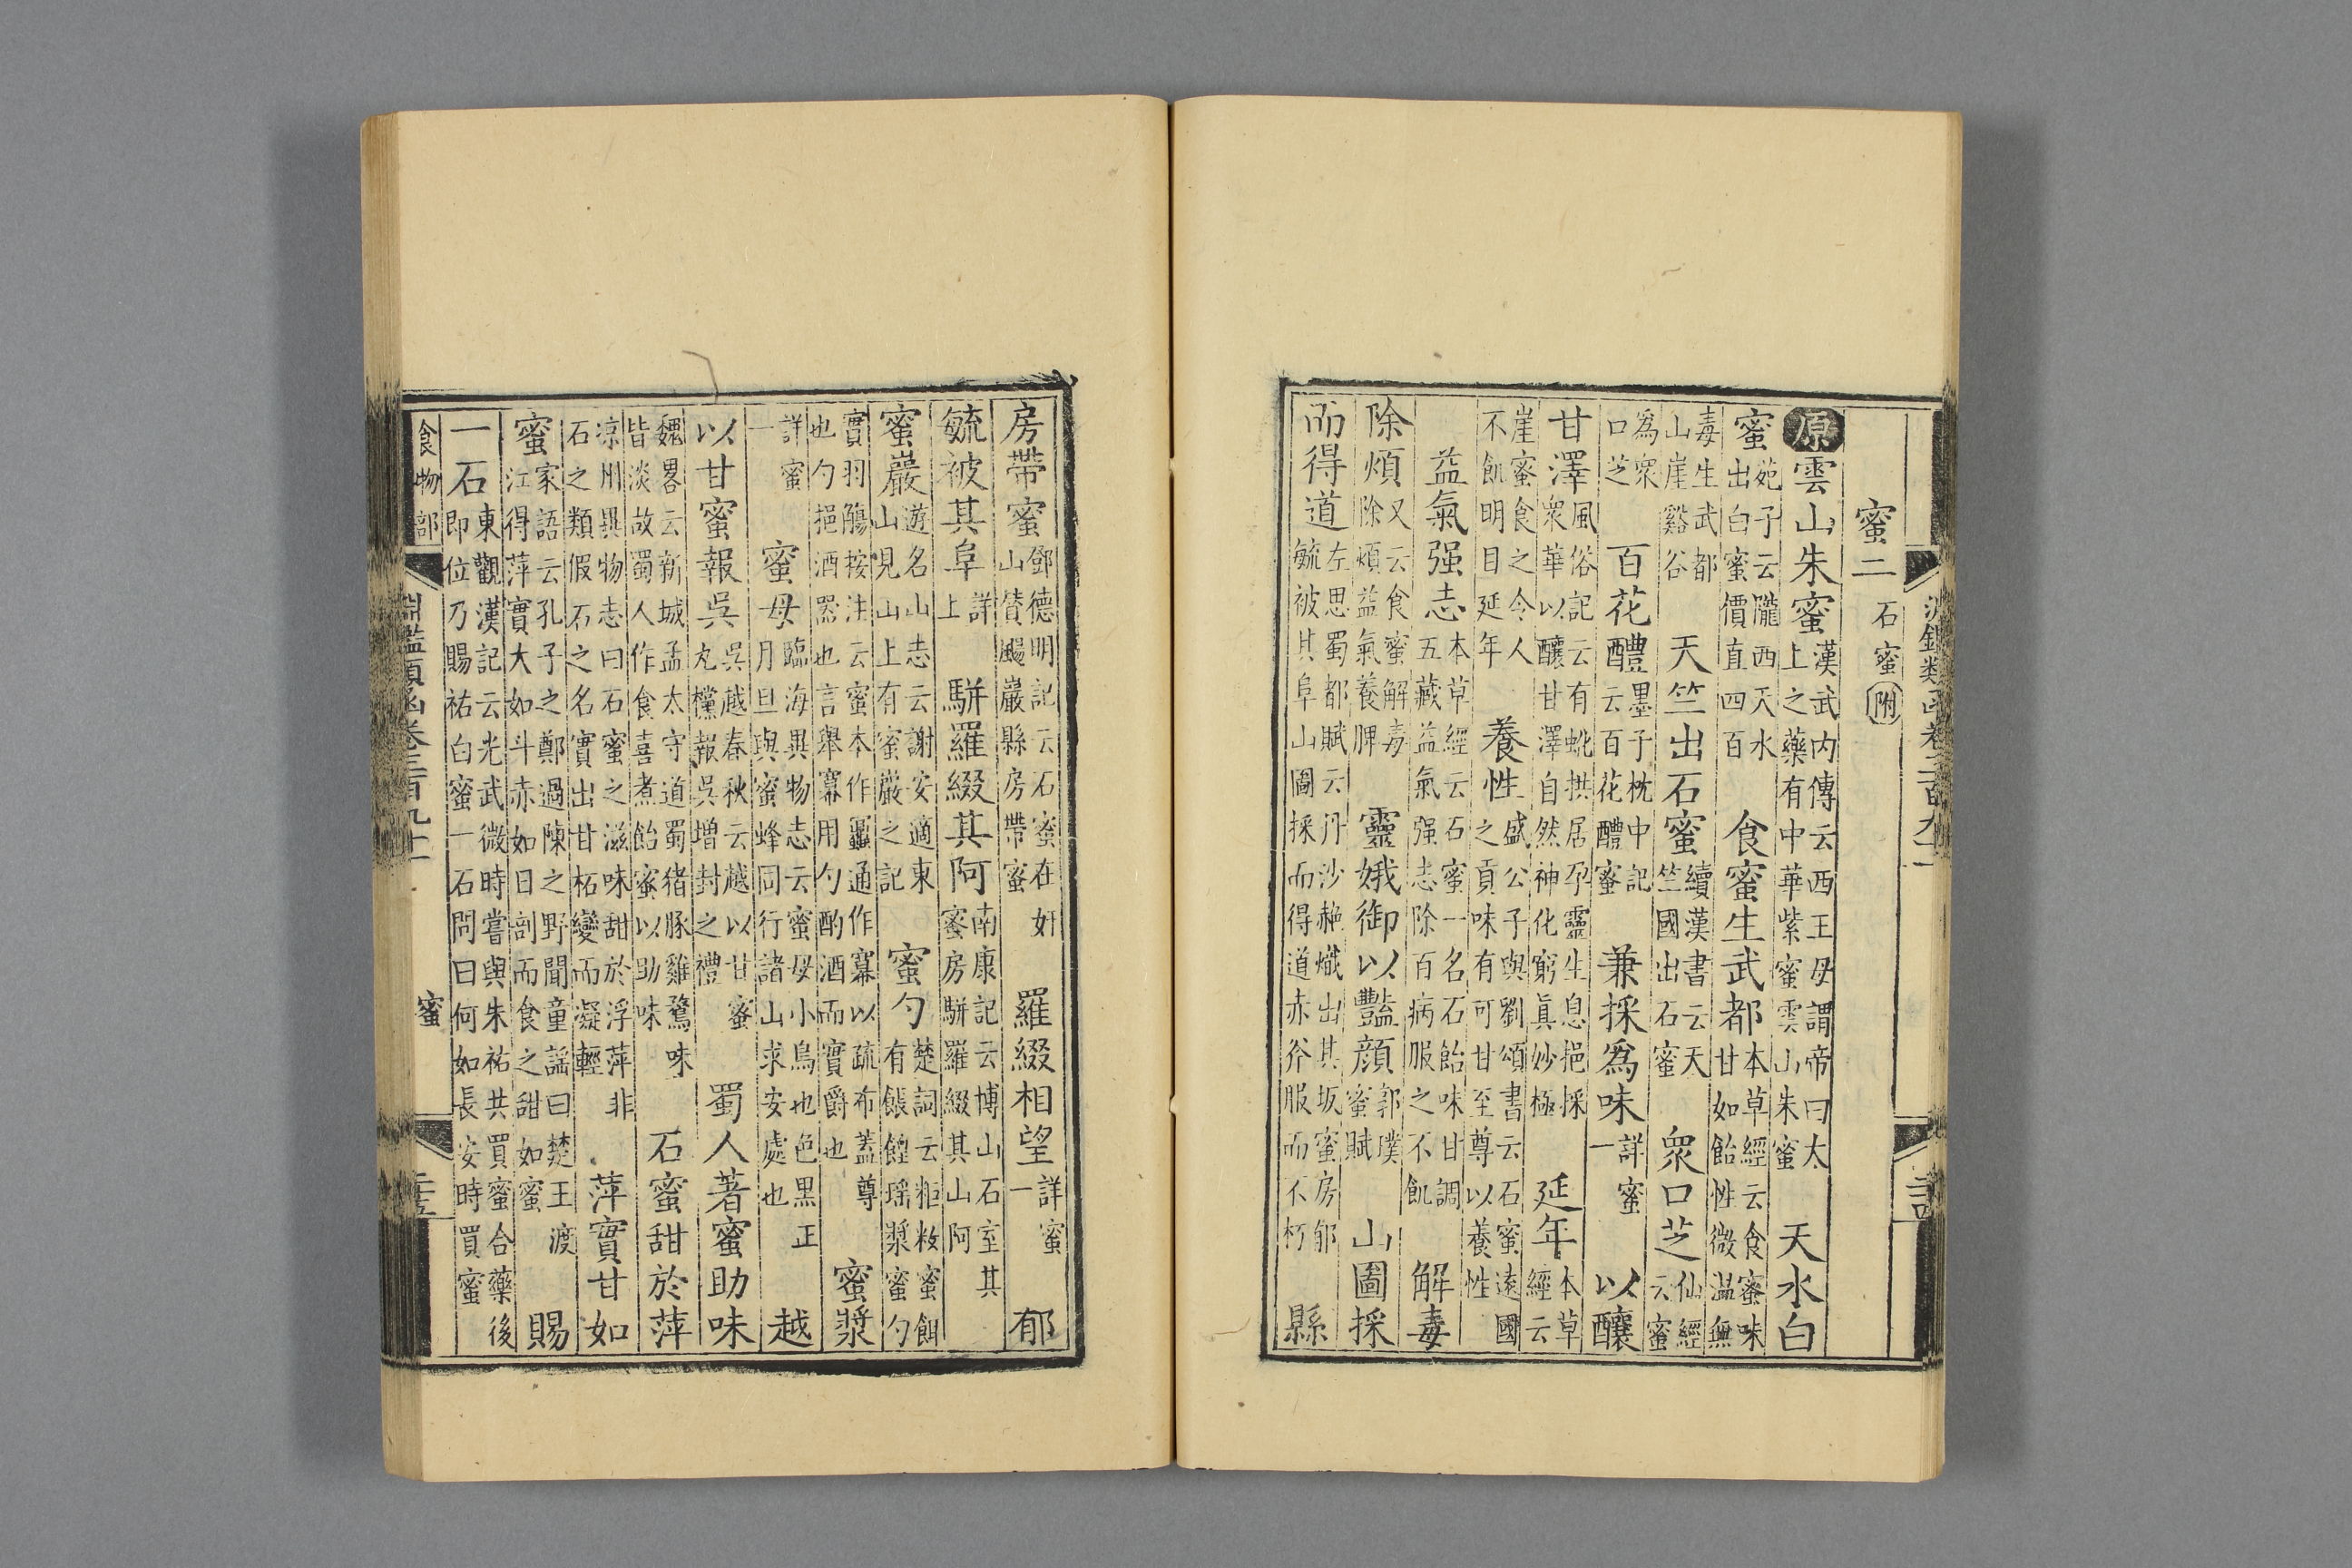 蜜二　石蜜附
原雲山朱蜜漢武内傳云西王母謂帝曰太上之藥有中華紫蜜雲山朱蜜　天水白
蜜苑子云隴西天水出白蜜價直四百　食蜜生武都本草經云食蜜味甘如飴性微温無
毒生武都山崖谿谷　天竺出石蜜續漢書云天竺國出石蜜　衆口芝仙經云蜜
爲衆口芝　百花醴墨子枕中記云百花醴蜜　兼採爲味詳蜜一　以釀
甘澤風俗記云有蚍拱居孕靈生息挹採衆華以釀甘澤自然神化窮眞妙極　延年本草經云
崖蜜食之令人不飢明目延年　養性盛公子與劉頌書云石蜜遠國之貢味有可甘至尊以養性
益氣强志本草經云石蜜一名石飴味甘調五藏益氣强志除百病服之不飢　解毒
除煩又云食蜜解毒除煩益氣養脾　靈娥御以豔顔郭璞蜜賦　山圖採
而得道左思蜀都賦云丹沙赩熾出其坂蜜房郁毓被其阜山圖採而得道赤斧服而不朽　縣
房帶蜜鄧德明記云石蜜在奸山贊颺巖縣房帶蜜　羅綴相望詳蜜一　郁
毓被其阜詳上　駢羅綴其阿南康記云博山石室其蜜房駢羅綴其山阿
蜜巖遊名山志云謝安適東山見山上有蜜巖之記　蜜勺楚詞云粔籹蜜餌有餦餭瑶漿蜜勺
實羽觴按注云蜜本作䵷通作幂以疏布蓋尊也勺挹酒器也言舉幂用勺酌酒而實爵也　蜜漿
詳蜜一　蜜母臨海異物志云蜜母小鳥也色黑正月旦與蜜蜂同行諸山求安處也　越
以甘蜜報吳吳越春秋云越以甘蜜丸欓報吳增封之禮　蜀人著蜜助味
魏畧云新城孟太守道蜀猪豚雞鶩味皆淡故蜀人作食喜煮飴蜜以助味　石蜜甜於萍
凉州異物志曰石蜜之滋味甜於浮萍非石之類假石之名實出甘柘變而凝輕　萍實甘如
蜜家語云孔子之鄭過陳之野聞童謡曰楚王渡江得萍實大如斗赤如日剖而食之甜如蜜　賜
一石東觀漢記云光武微時嘗與朱祐共買蜜合藥後即位乃賜祐白蜜一石問曰何如長安時買蜜
食物部　淵鑑類函卷三百九十一　蜜　二十五